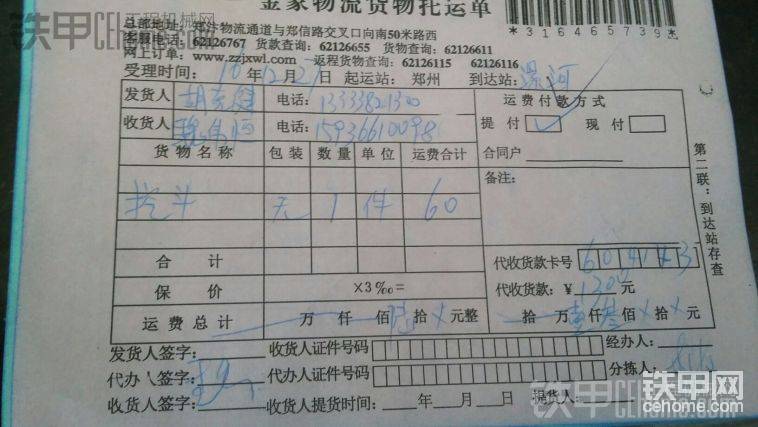 金家物流货物托运单
*31465739*
客服电话：62126767 货款查询：62126655 货物查询：62126611
网上订单：www.zzjxwl.com 返程货物查询：62126115 62126116
受理时间：16年12月2日 起运站：郑州 到达站：漯河
发货人 电话：
运费付款方式
收货人 电话：15936610098
提付 ✓ 现付
货物名称 包装 数量 单位 运费合计
合同户
备注：
挖斗 无 1 件 60
合计
代收货款卡号
保价 ×3‰=
代收货款：¥1300元
运费总计 万 仟 佰 陆拾 元整
拾 万 壹仟 叁佰 拾 元
第二联：到达站存查
发货人签字： 收货人证件号码 经办人：
代办人签字： 代办人证件号码 分拣人：
收货人签字： 收货人提货时间： 年 月 日 提货人：
铁甲工程机械网
铁甲网
cehome.com